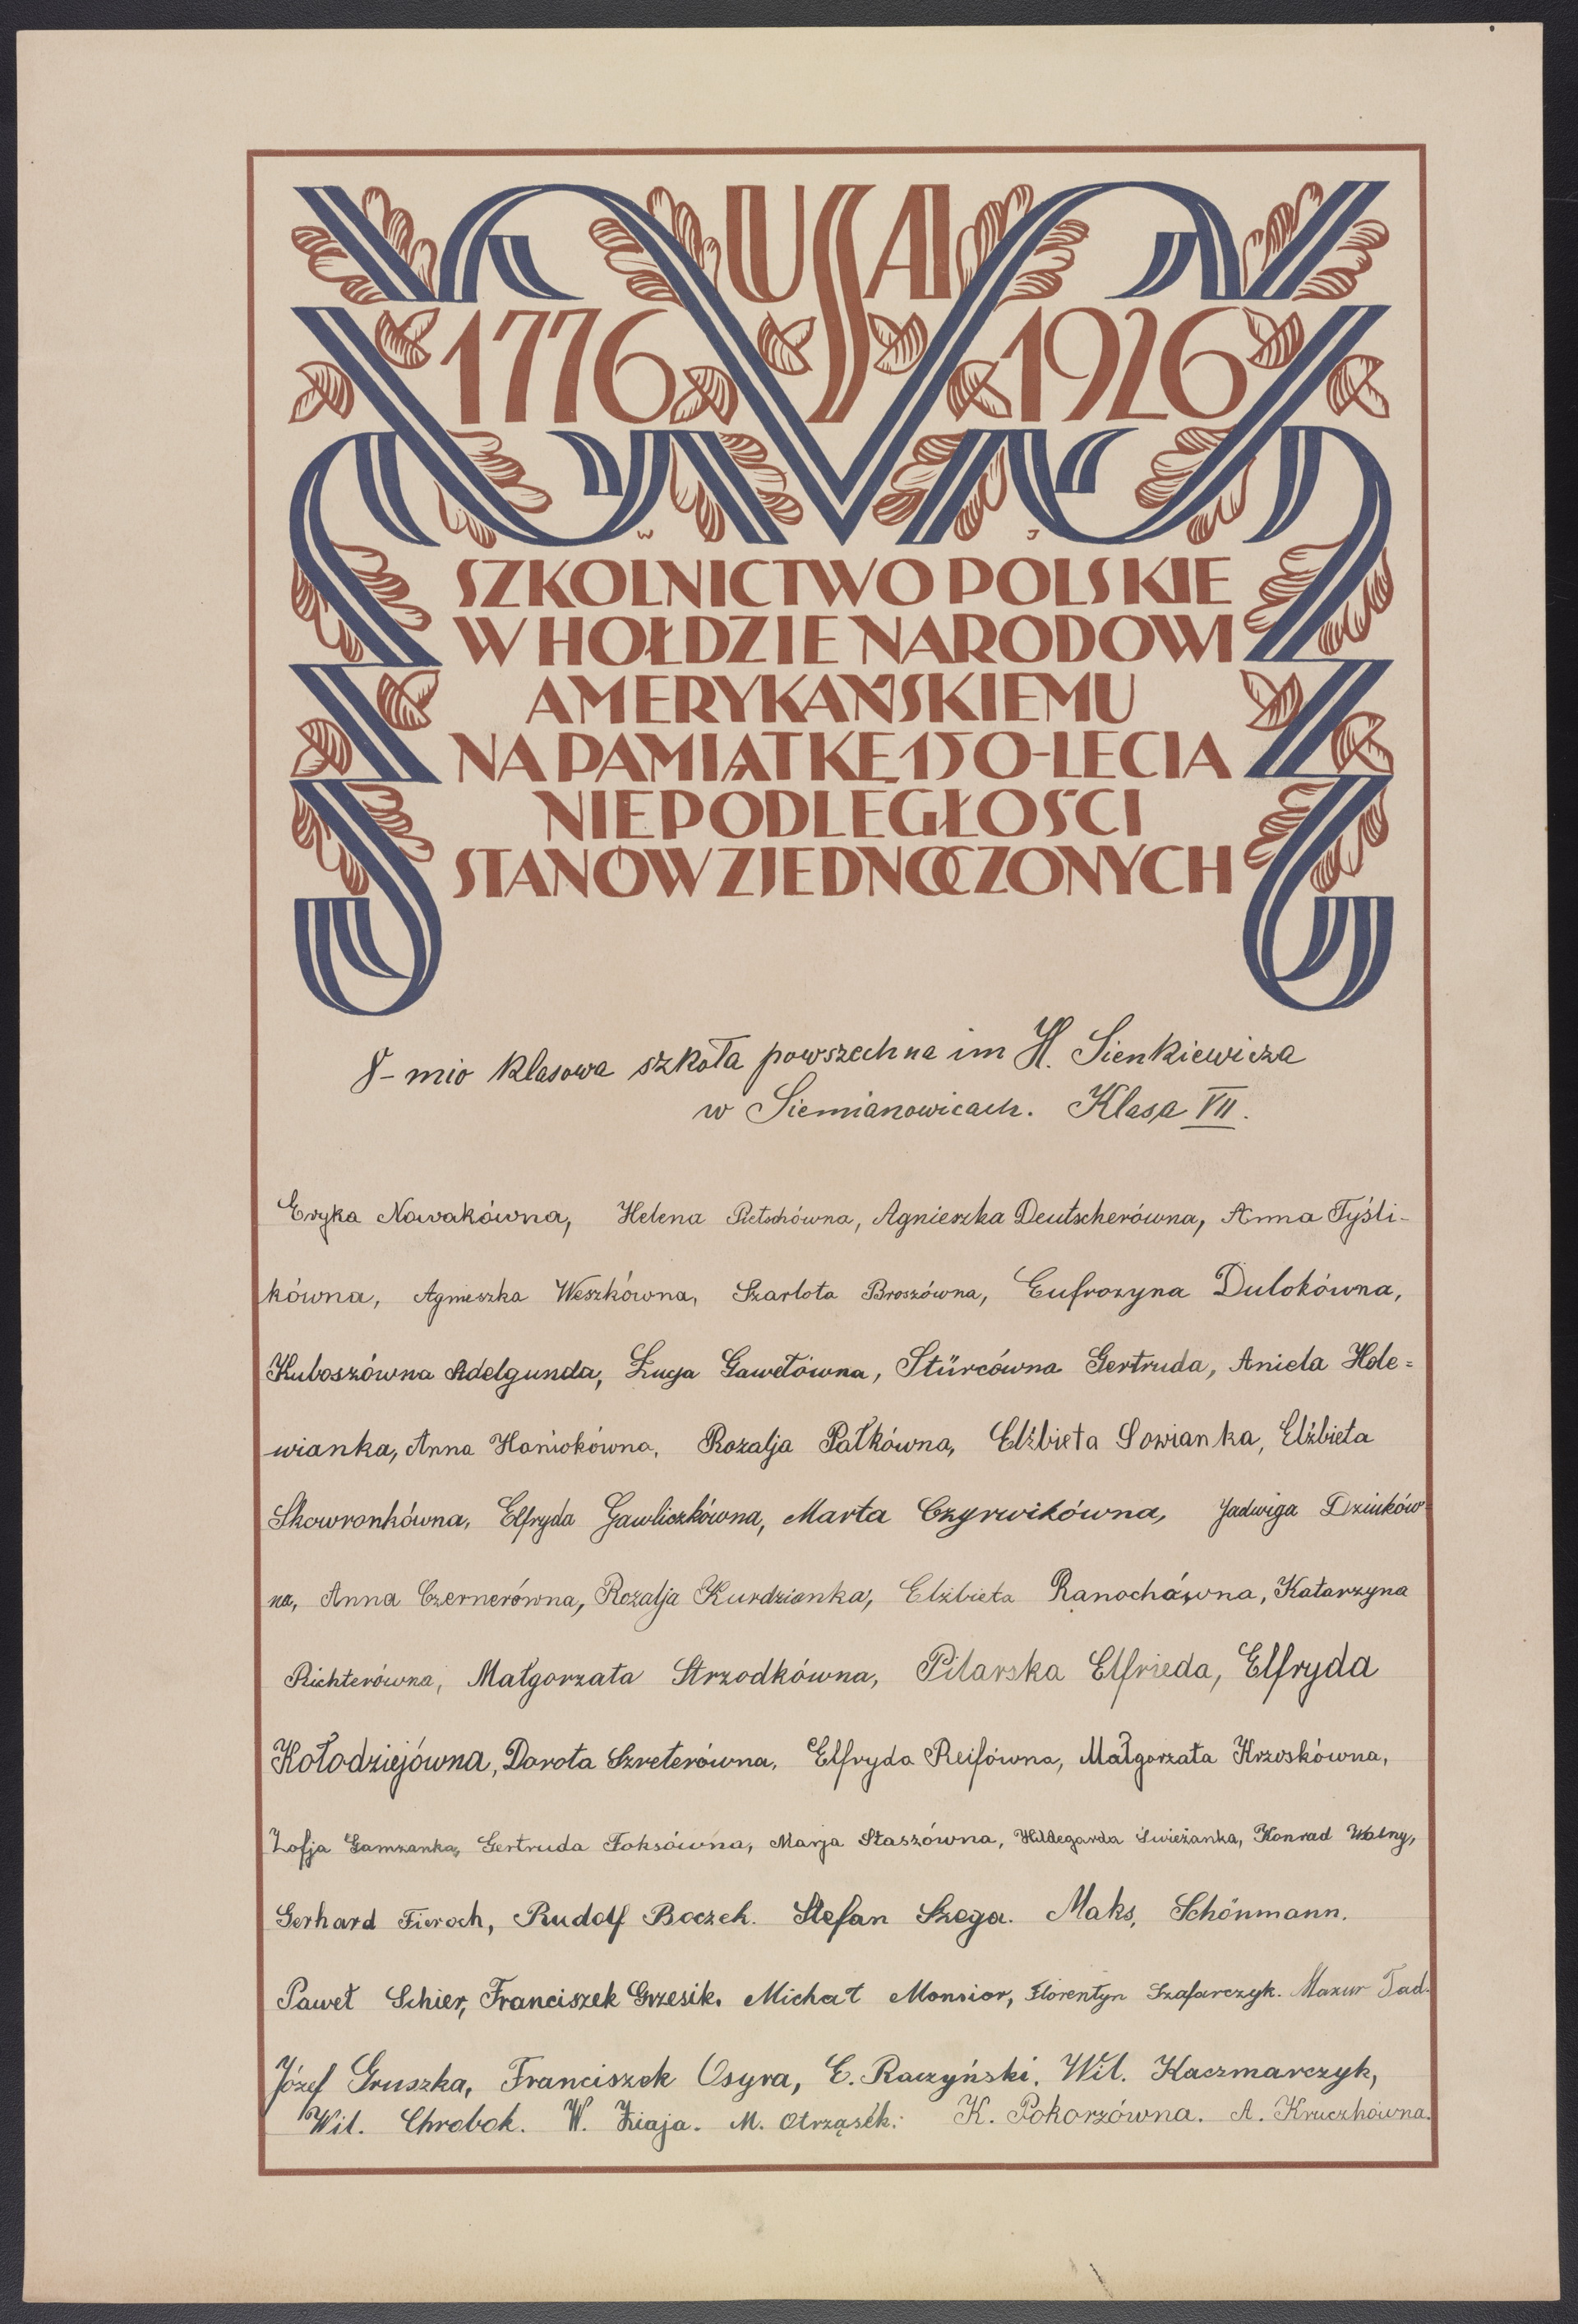 USA
1776 1926
W J
SZKOLNICTWO POLSKIE
W HOŁDZIE NARODOWI
AMERYKAŃSKIEMU
NA PAMIĄTKĘ 150-LECIA
NIEPODLEGŁOŚCI
STANÓW ZJEDNOCZONYCH
8-mio klasowa szkoła powszechna im H. Sienkiewicza
w Siemianowicach. Klasa VII.
Eryka Nowakówna, Helena Pietschówna, Agnieszka Deutscherówna, Anna Tyśli-
kówna, Agnieszka Weszkówna, Szarlota Broszówna, Eufrozyna Dulokówna,
Kuboszówna Adelgunda, Łucja Gawełówna, Stürcówna Gertruda, Aniela Hole=
wianka, Anna Hańiokówna, Rozalja Pałkówna, Elżbieta Sowianka, Elżbieta
Skowronkówna, Elfryda Gawliczkówna, Marta Czyrwikówna, Jadwiga Dziuków-
na, Anna Czernerówna, Rozalja Kurdzianka, Elżbieta Ranochówna, Katarzyna
Richterówna, Małgorzata Strzodkówna, Pilarska Elfrieda, Elfryda
Kołodziejówna, Dorota Szreterówna, Elfryda Reifówna, Małgorzata Krzoskówna,
Zofja Gamzanka, Gertruda Foksówna, Marja Staszówna, Hildegarda Świeżanka, Konrad Wolny,
Gerhard Fieroch, Rudolf Boczek. Stefan Szega. Maks, Schönmann.
Paweł Schier, Franciszek Grzesik. Michał Monsior, Florentyn Szafarczyk. Mazur Tad.
Józef Gruszka, Franciszek Osyra, E. Raczyński. Wil. Kaczmarczyk,
Wil. Chrobok. W. Ziaja. M. Otrząsek. K. Pokorzówna. A. Kruczkówna.